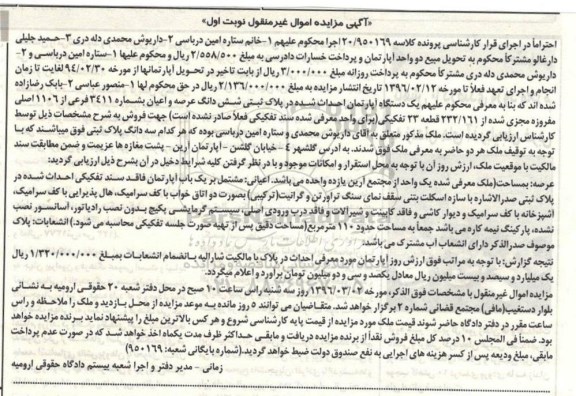 «آگهی مزایده اموال غیرمنقول نوبت اول»
احتراماً در اجرای قرار کارشناسی پرونده کلاسه ۲۰/۹۵۰۱۶۹ اجرا محکوم علیهم ۱-خانم ستاره امین درباسی ۲-داریوش محمدی دله دری ۳-حمید جلیلی
دارغالو مشترکاً محکوم به تحویل مبیع دو واحد آپارتمان و پرداخت خسارات دادرسی به مبلغ ۲/۵۵۸/۵۰۰ ریال و محکوم علیها ۱-ستاره امین درباسی و ۲-
داریوش محمدی دله دری مشترکاً محکوم به پرداخت روزانه مبلغ ۳/۰۰۰/۰۰۰ ریال از بابت تاخیر در تحویل آپارتمانها از مورخه ۹۴/۰۲/۳۰ لغایت تا زمان
انجام و اجرای تعهد فعلاً تا مورخه ۱۳۹۶/۰۲/۱۲ تاریخ انتشار مزایده به مبلغ ۲/۱۳۶/۰۰۰/۰۰۰ ریال در حق محکوم لها ۱-منصور عباسی ۲-بابک رضازاده
شده اند که بنا به معرفی محکوم علیهم یک دستگاه آپارتمان احداث شده در پلاک ثبتی شش دانگ عرصه و اعیان بشماره ۳۴۱۱ فرعی از ۱۱۰۶ اصلی
مفروزه مجزی شده از ۲۳۲/۱۶۱ قطعه ۲۳ تفکیکی (برای واحد معرفی شده سند تفکیکی فعلاً صادر نشده است) جهت فروش به شرح مشخصات ذیل توسط
کارشناس ارزیابی گردیده است. ملک مذکور متعلق به آقای داریوش محمدی و ستاره امین درباسی بوده که هر کدام سه دانگ پلاک ثبتی فوق میباشند که با
توجه به توقیف ملک هر دو حاضر به معرفی ملک فوق شدند. به آدرس گلشهر ۴ - خیابان گلشن - آپارتمان آرین - پشت مغازه ها عزیمت و ضمن مطابقت سند
مالکیت با موقعیت ملک، ارزش روز آن با توجه به محل استقرار و امکانات موجود و با در نظر گرفتن کلیه شرایط دخیل در آن بشرح ذیل ارزیابی گردید:
عرصه: بمساحت (ملک معرفی شده یک واحد از مجتمع آرین یازده واحده می باشد. اعیانی: مشتمل بر یک باب آپارتمان فاقد سند تفکیکی احداث شده در
پلاک ثبتی صدرالاشاره با سازه اسکلت بتنی سقف نمای سنگ تراورتن و گرانیت (ترکیبی) بصورت دو اتاق خواب با کف سرامیک، هال پذیرایی با کف سرامیک،
آشپزخانه با کف سرامیک و دیوار کاشی و فاقد کابینت و شیرآلات و فاقد درب ورودی اصلی، سیستم گرمایشی پکیج بدون نصب رادیاتور، آسانسور نصب
نشده، پارکینگ نیمه کاره می باشد جمعاً به مساحت حدود ۱۱۰ مترمربع (مساحت دقیق پس از تهیه صورت جلسه تفکیکی محاسبه می شود.) انشعابات: پلاک
موصوف صدرالذکر دارای انشعاب آب مشترک می باشد.
نتیجه گزارش: با توجه به مراتب فوق ارزش روز آپارتمان مورد معرفی احداث در پلاک با مالکیت مشارالیه بانضمام انشعابات بمبلغ ۱/۳۳۰/۰۰۰/۰۰۰ ریال
یک میلیارد و سیصد و بیست میلیون ریال معادل یکصد و سی و دو میلیون تومان برآورد و اعلام میگردد.
مزایده اموال غیرمنقول با مشخصات فوق الذکر، مورخه ۱۳۹۶/۰۳/۰۶ روز سه شنبه راس ساعت ۱۰ صبح در محل دفتر شعبه ۲۰ حقوقی ارومیه به نشانی
بلوار دستغیب(مافی) مجتمع قضائی شماره ۲ برگزار خواهد شد. متقاضیان می توانند ۵ روز مانده به موعد مزایده از محل بازدید و ملک را ملاحظه و راس
ساعت مقرر در دفتر دادگاه حاضر شوند قیمت ملک مورد مزایده از قیمت پایه کارشناسی شروع و هر کس بالاترین مبلغ را پیشنهاد نماید برنده مزایده خواهد
بود. ضمناً فی المجلس ۱۰ درصد کل مبلغ فروش نقداً از برنده مزایده دریافت و مابقی حداکثر ظرف مدت یکماه اخذ خواهد شد که در صورت عدم پرداخت
مابقی، مبلغ ودیعه پس از کسر هزینه های اجرایی به نفع صندوق دولت ضبط خواهد گردید. (شماره بایگانی شعبه: ۹۵۰۱۶۹)
زمانی - مدیر دفتر و اجرا شعبه بیستم دادگاه حقوقی ارومیه